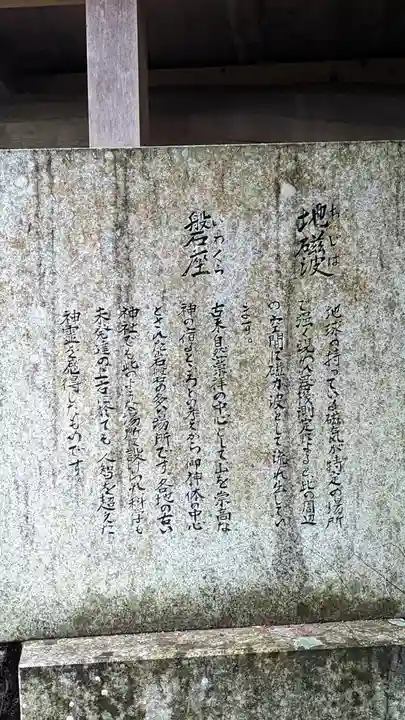 ちじは
地磁波
地球の持っている磁気が特定の場所
で強く現れ
測定によると此の周辺
の空間に磁力波として流れ出てい
ます。
いわくら
磐座
古来自然崇拝の中心として山を崇高な
神の宿るところと考えから御神体の中心
とされ岩石の多い場所です。各地の古い
神社でも此
場所に設けられ科学も
未発達の上古に於ても人智を超えた
神霊を感得したものです。